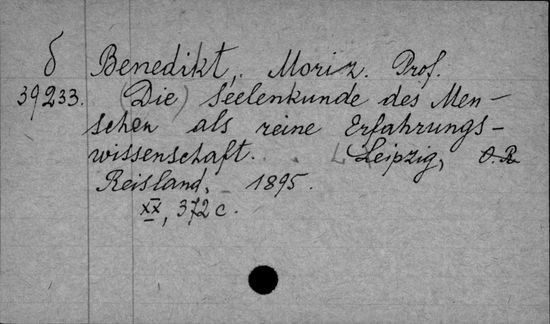 δ Benedikt, Moriz. Prof.
39233. (Die) Seelenkunde des Men-
schen als reine Erfahrungs-
wissenschaft. Leipzig, O. R.
Reisland, 1895.
XX, 372 c.